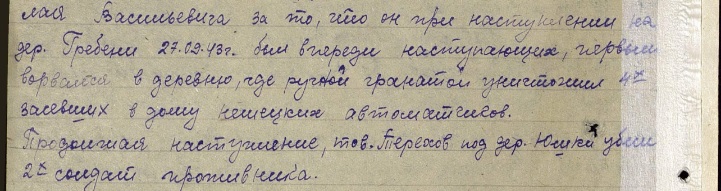 лая Васильевича за то, что он при наступлении на
дер. Гребени 27.09.43г. был впереди наступающих, первым
ворвался в деревню, где ручной гранатой уничтожил 4х
засевших в дому немецких автоматчиков.
Продолжая наступление, тов. Терехов под дер. Юшки убил
2х солдат противника.